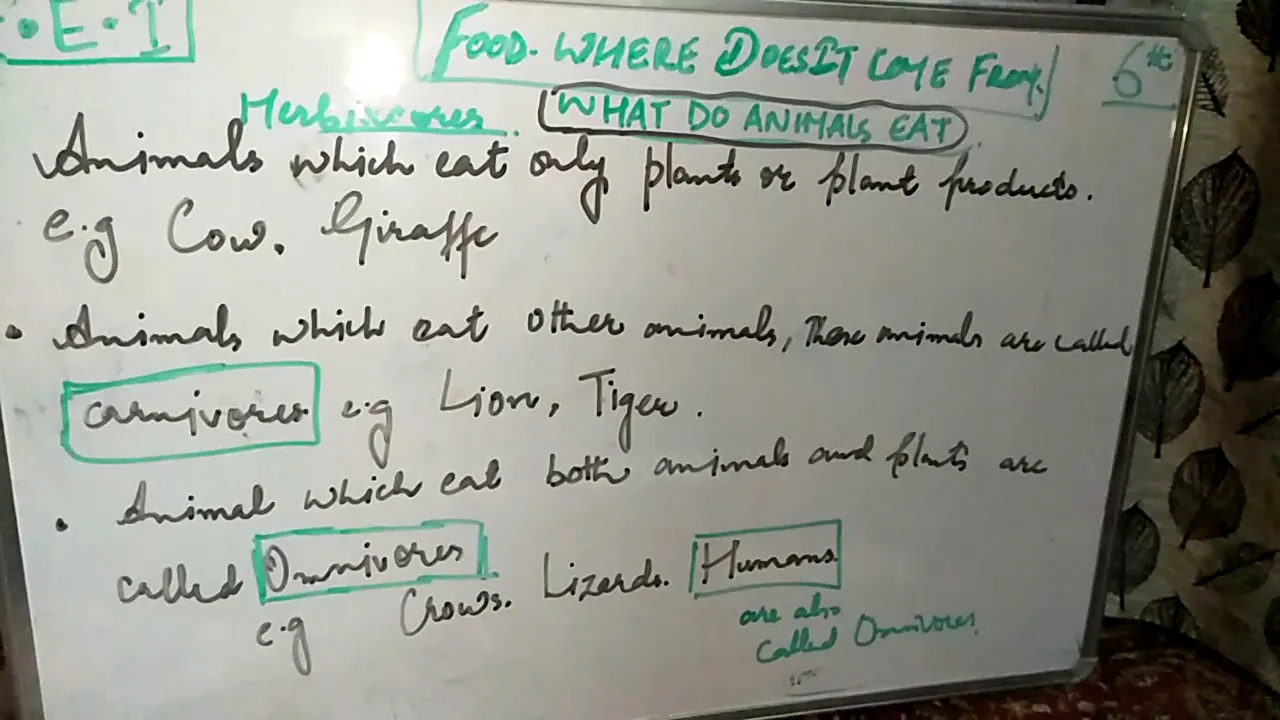 .E.I
FOOD. WHERE DOES IT COME FROM.
6th
Herbivores. WHAT DO ANIMALS EAT
Animals which eat only plants or plant products.
e.g Cow. Giraffe
• Animals which eat other animals, These animals are called
carnivores. e.g Lion, Tiger.
• Animal which eat both animals and plants are
called Omnivores
e.g Crows. Lizards. Humans
are also
called Omnivores.